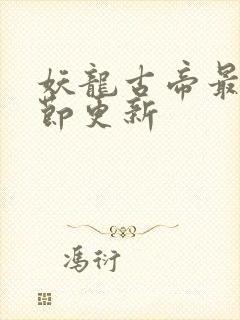 妖龍古帝最
節更新
馮衍